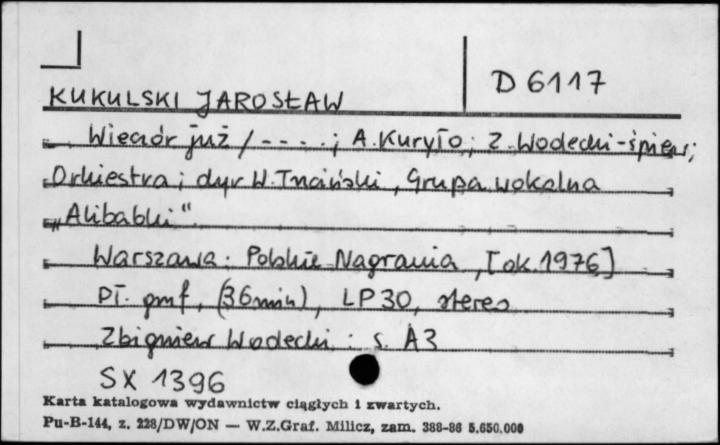 D 6117
KUKULSKI JAROSŁAW
Wieczór już / - - - . ; A. Kuryło ; Z. Wodecki - śpiew ;
Orkiestra ; dyr W. Trzciński , Grupa wokalna
„Alibabki".
Warszawa : Polskie Nagrania , [ok. 1976]
Pł. gmf. (36 min) , LP 30, stereo
Zbigniew Wodecki . : s. A3
SX 1396
Karta katalogowa wydawnictw ciągłych i zwartych.
Pu-B-144, z. 228/DW/ON — W.Z.Graf. Milicz, zam. 388-86 5.650.000